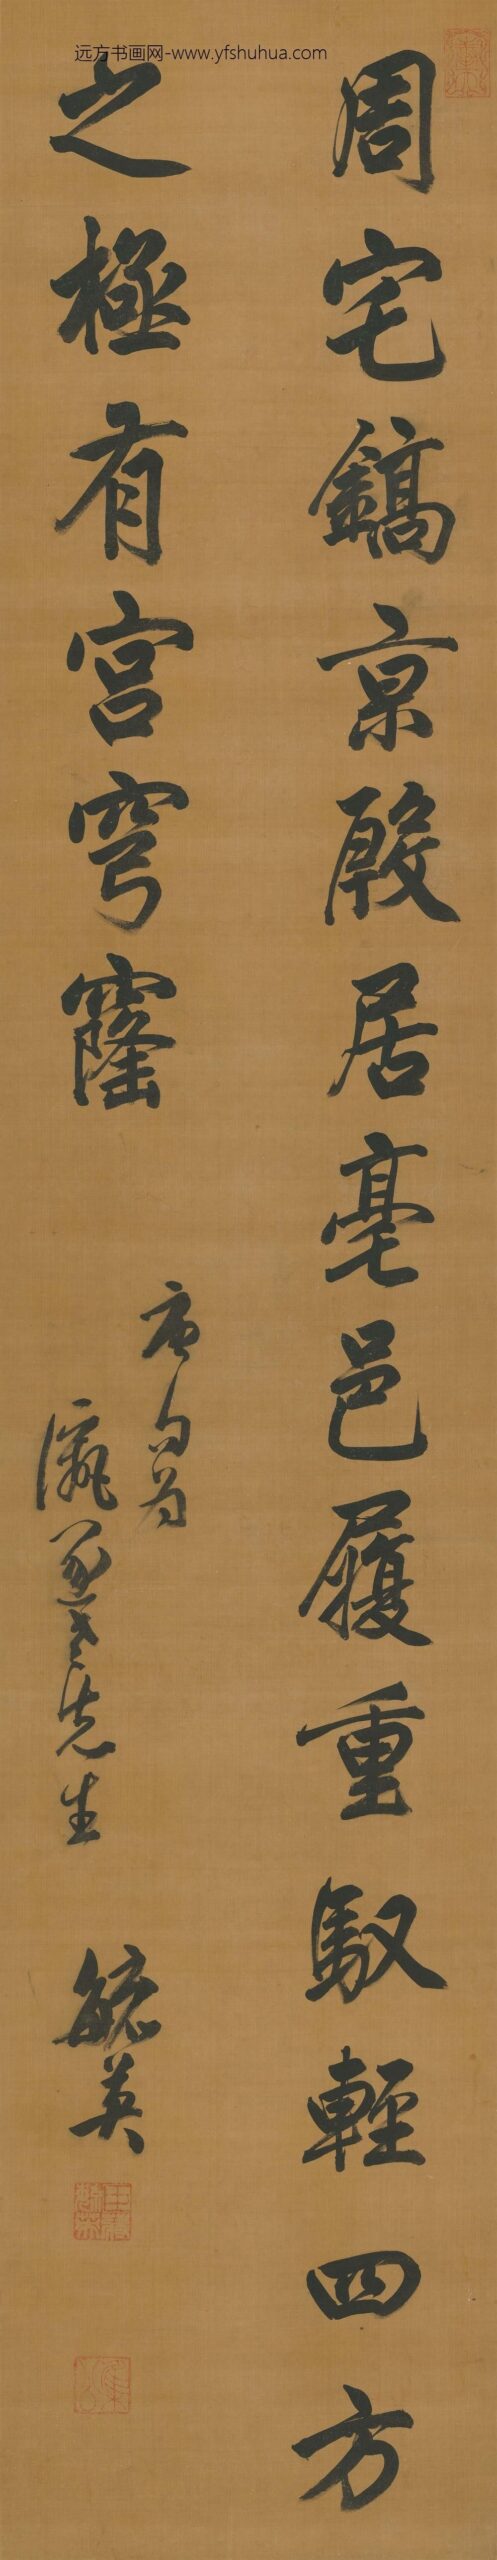 远方书画网-www.yfshuhua.com
周宅鎬京殷居亳邑履重馭輕四方
之極有宮穹窿
唐句為
瀛 老先生
毓英